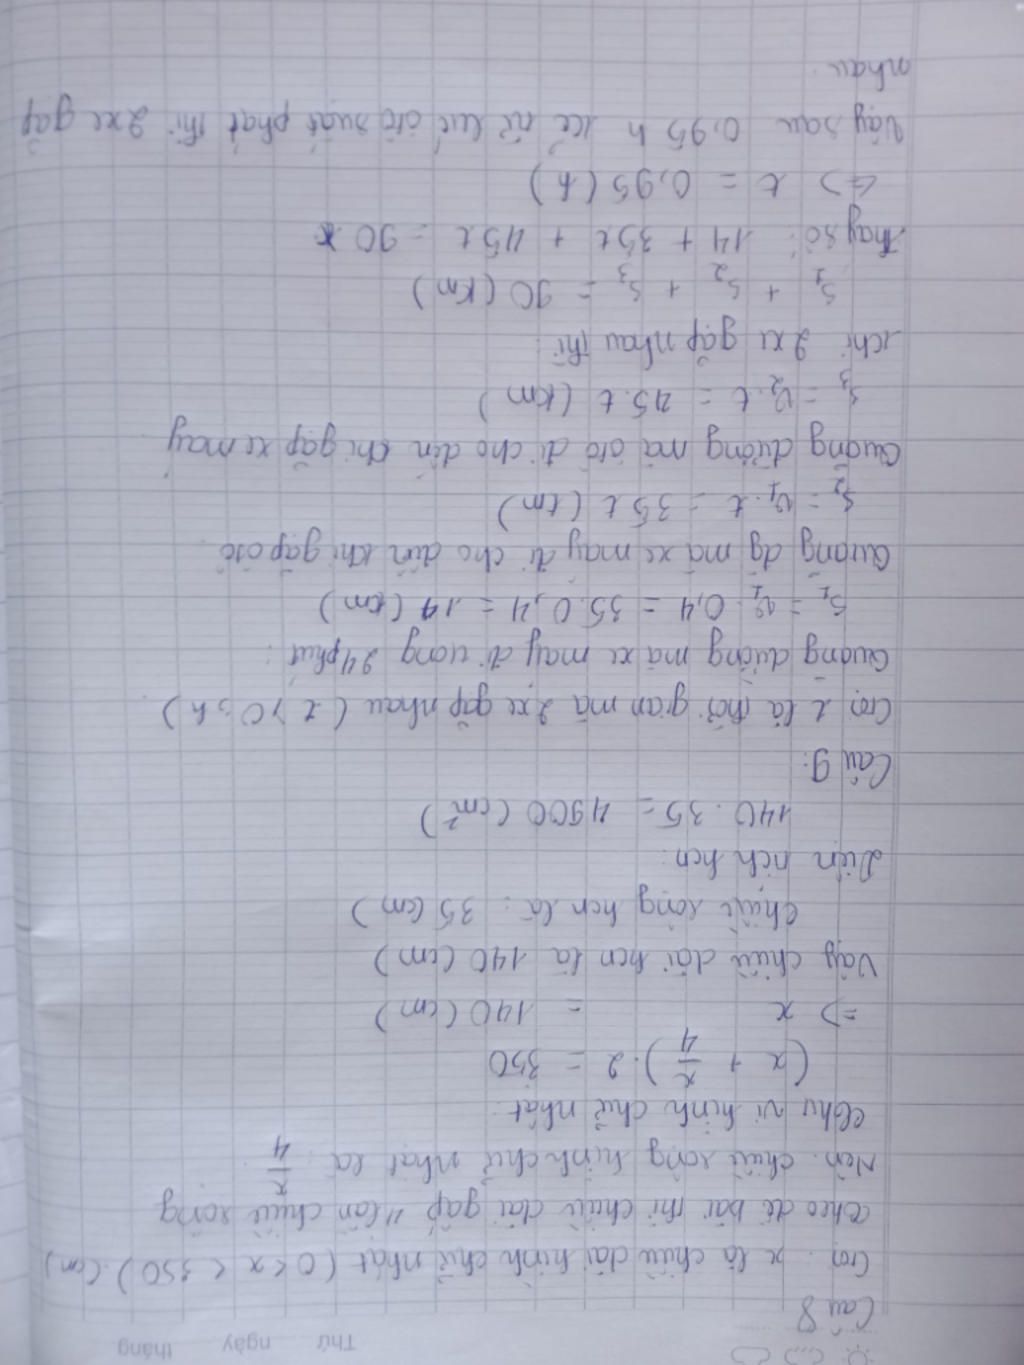 Thứ ngày tháng
Câu 8
Gọi x là chiều dài hình chữ nhật (0 < x < 350) (cm)
Theo đề bài thì chiều dài gấp 4 lần chiều rộng
Nên chiều rộng hình chữ nhật là x/4
Chu vi hình chữ nhật
(x + x/4).2 = 350
=> x = 140 (cm)
Vậy chiều dài hcn là 140 (cm)
chiều rộng hcn là : 35 (cm)
Diện tích hcn :
140 . 35 = 4900 (cm²)
Câu 9:
Gọi t là thời gian mà 2 xe gặp nhau (t > 0; h)
Quãng đường mà xe máy đi trong 24 phút :
S₁ = v₁. 0,4 = 35.0,4 = 14 (km)
Quãng đg mà xe máy đi cho đến khi gặp ôtô
S₂ = v₁. t = 35t (km)
Quãng đường mà ôtô đi cho đến khi gặp xe máy
S₃ = v₂. t = 45.t (km)
Khi 2 xe gặp nhau thì :
S₁ + S₂ + S₃ = 90 (km)
Thay số : 14 + 35t + 45t = 90
<=> t = 0,95 (h)
Vậy sau 0,95 h kể từ lúc ôtô xuất phát thì 2 xe gặp
nhau.